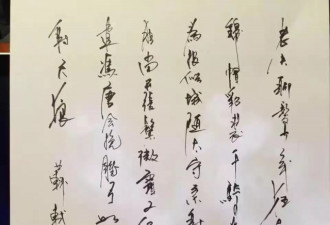 老夫聊發少年狂左
錦帽貂裘千騎
為報傾城隨太守親射
尚開張鬢微霜又何
遣馮唐會挽雕弓如
射天狼 蘇軾